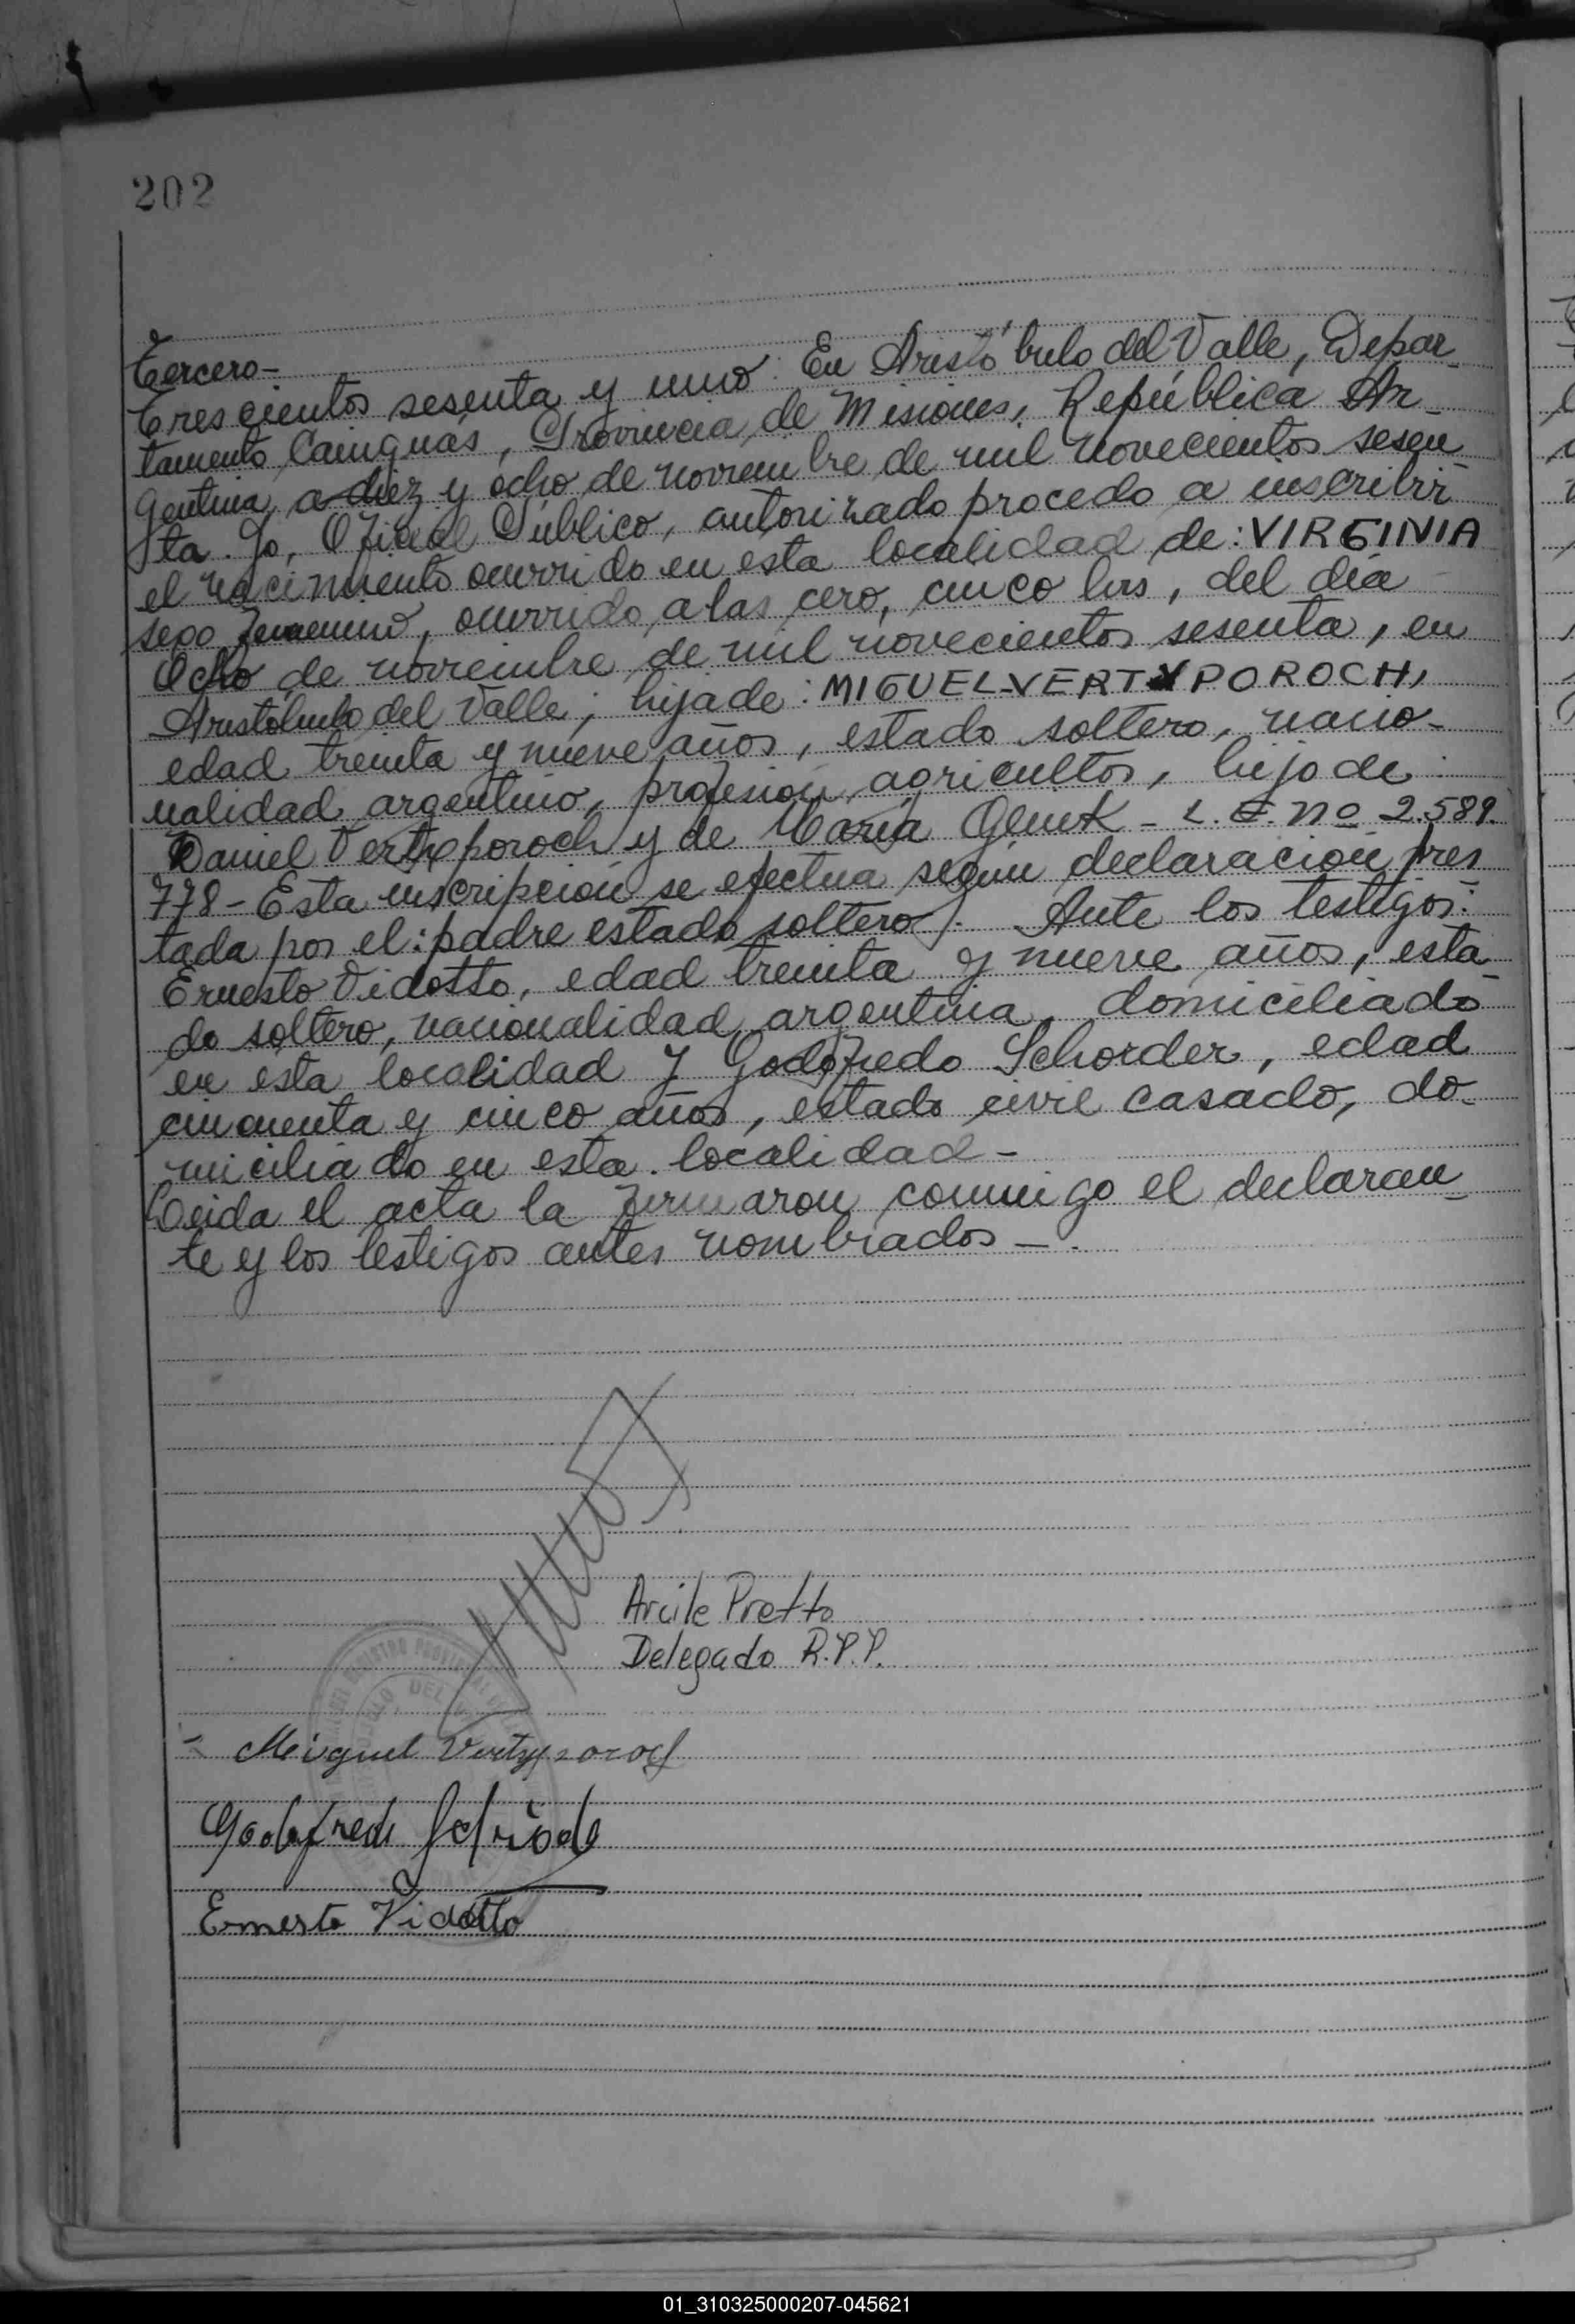 202
Tercero-
Trescientos sesenta y uno. En Aristóbulo del Valle, Depar-
tamento Cainguás, Provincia de Misiones, República Ar-
gentina, a diez y ocho de noviembre de mil novecientos sesen-
ta. Yo, Oficial Público, autorizado procedo a inscribir
el nacimiento ocurrido en esta localidad de: VIRGINIA
sexo femenino, ocurrido a las cero, cinco hrs, del día
Ocho de noviembre de mil novecientos sesenta, en
Aristobulo del Valle; hija de: MIGUEL VERTYPOROCH,
edad treinta y nueve años, estado soltero, nacio-
nalidad argentino, profesion agricultor, hijo de
Daniel Vertyporoch y de María Glinek - L.E. No 2.589.
778 - Esta inscripcion se efectua según declaracion pres
tada por el: padre estado soltero. Ante los testigos:
Ernesto Vidotto, edad treinta y nueve años, esta-
do soltero, nacionalidad argentina, domiciliado
en esta localidad y Godofredo Schorder, edad
cincuenta y cinco años, estado civil casado, do-
miciliado en esta localidad -
Leida el acta la firmaron conmigo el declaran-
te y los testigos antes nombrados -
Arcile Pretto
Delegado R.P.P.
DEL REGISTRO PROVINCIAL DE
DEL
Miguel Vertyporoch
Godofredo
Ernesto Vidotto
01_310325000207-045621